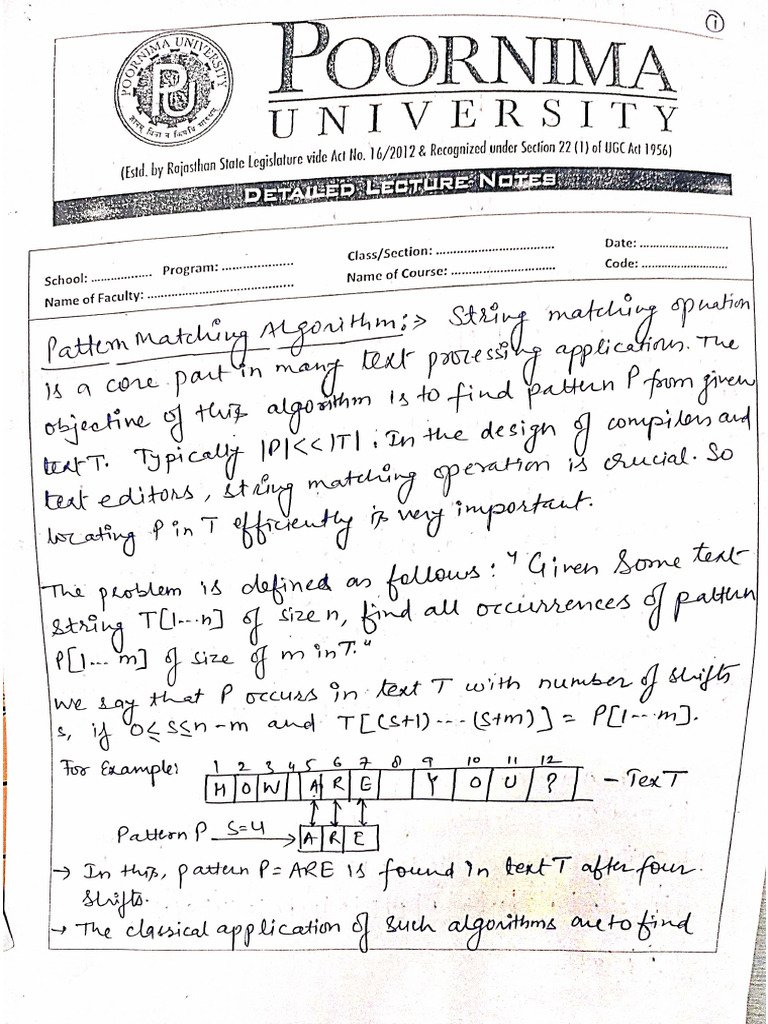 ①
POORNIMA UNIVERSITY
PU
POORNIMA
UNIVERSITY
(Estd. by Rajasthan State Legislature vide Act No. 16/2012 & Recognized under Section 22 (1) of UGC Act 1956)
DETAILED LECTURE NOTES
School: .................. Program: .................... Class/Section: ................................. Date: .........................
Name of Faculty: ......................................... Name of Course: ............................. Code: ........................
Pattern Matching Algorithm:⇒ String matching opration
is a core part in many text processing applications. The
objective of this algorithm is to find pattern P from given
text T. Typically |P|<<|T|. In the design of compilers and
text editors, string matching operation is crucial. So
locating P in T efficiently is very important.
The problem is defined as follows: "Given Some text
string T[1...n] of size n, find all occurrences of pattern
P[1...m] of size of m in T."
We say that P occurs in text T with number of shifts
s, if 0≤s≤n-m and T[(s+1)...(s+m)] = P[1...m].
For Example: 1 2 3 4 5 6 7 8 9 10 11 12
H O W A R E Y O U ? - Text T
Pattern P S=4 → A R E
→ In this, pattern P = ARE is found in text T after four
shifts.
→ The classical application of such algorithms are to find